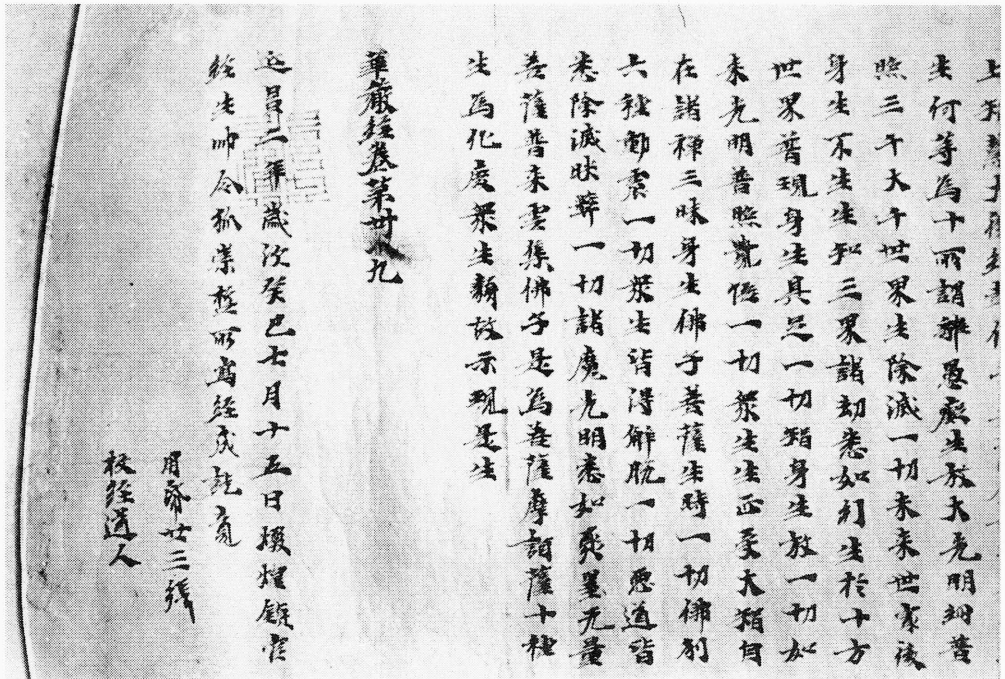 生何等為十所謂離愚癡生放大光明網普
照三千大千世界生除滅一切未來世家後
身生不生生知三界諸劫悉如幻生於十方
世界普現身生具足一切智身生放一切如
來光明普照覺悟一切衆生生正受大智自
在諸禪三昧身生佛子菩薩生時一切佛刹
六種動震一切衆生皆得解脫一切惡道皆
悉除滅映蔽一切諸魔光明悉如聚墨无量
菩薩普來雲集佛子是為菩薩摩訶薩十種
生為化度衆生類故示現是生
華嚴經卷第卅九
延昌二年歲次癸巳七月十五日燉煌鎮官
經生帥令狐崇哲所寫經成訖竟
用帋廿三張
校經道人